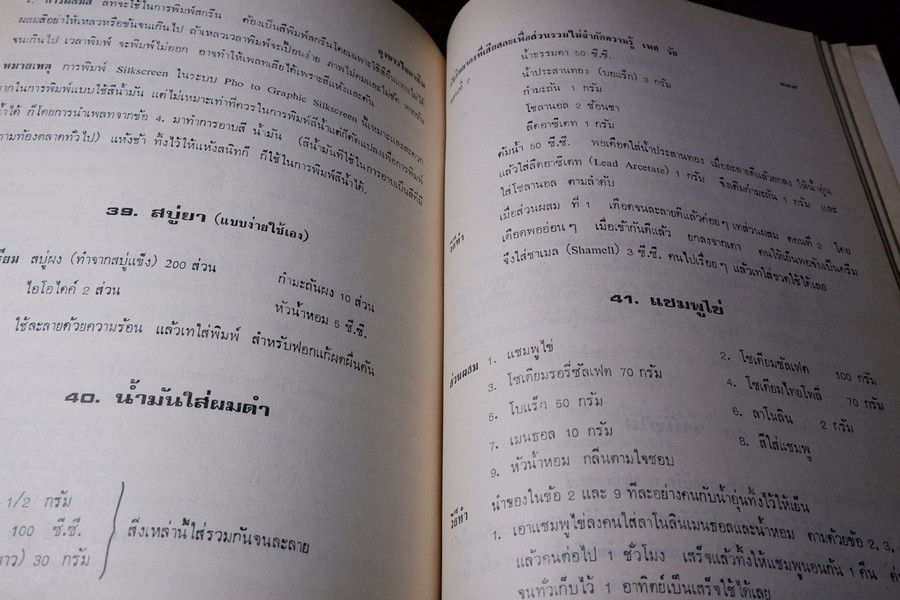 ผสมสีอย่าให้เหลวหรือข้นจนเกินไป ถ้าเหลวเวลาพิมพ์จะเปื้อนง่าย
จนะเกินไป เวลาพิมพ์ จะพิมพ์ไม่ออก อาจทำให้เพลทเสียได้เพราะสีแห้งและตัน
หมายเหตุ การพิมพ์ Silkscreen ในระบบ Pho to Graphic Silkscreen นี้เหมาะและสะดวก
มากในการพิมพ์แบบใช้สีน้ำมัน แต่ไม่เหมาะเท่าที่ควรในการพิมพ์สีน้ำแต่ก็ดัดแปลงเพื่อการพิมพ์
น้ำได้ ก็โดยการนำเพลทจากข้อ 4. มาทำการอาบสี น้ำมัน (สีน้ำมันที่ใช้ในการอาบเป็นสีที่มี
ตามท้องตลาดทั่วไป) แห้งช้า ทิ้งไว้ให้แห้งสนิทก็ ก็ใช้ในการพิมพ์สีน้ำได้.
39. สบู่ยา (แบบง่ายใช้เอง)
สบู่ผง (ทำจากสบู่แข็ง) 200 ส่วน กำมะถันผง 10 ส่วน
ไอโอไดค์ 2 ส่วน หัวน้ำหอม 5 ซี.ซี.
ใช้ละลายด้วยความร้อน แล้วเทใส่พิมพ์ สำหรับฟอกแก้ผดผื่นคัน
40. น้ำมันใส่ผมดำ
1/2 กรัม
100 ซี.ซี.
30 กรัม
สิ่งเหล่านี้ใส่รวมกันจนละลาย
น้ำธรรมดา 50 ซี.ซี.
น้ำประสานทอง (บอแร็ก) 3 กรัม
กำมะถัน 1 กรัม
โซลานอล 2 ช้อนชา
ลีดอาซีเตท 1 กรัม
ต้มน้ำ 50 ซี.ซี. พอเดือดใส่น้ำประสานทอง เมื่อละลายดีแล้วยกลง ให้น้ำอุ่น
แล้วใส่ลีดอาซีเตท (Lead Arcetate) 1 กรัม จึงเติมกำมะถัน 1 กรัม และ
ใส่โซลานอล ตามลำดับ
วิธีทำ เมื่อส่วนผสม ที่ 1 เดือดจนละลายดีแล้วค่อยๆ เทส่วนผสม ตอนที่ 2 โดย
เดือดพออ่อนๆ เมื่อเข้ากันดีแล้ว ยกลงจากเตา คนให้เย็นพอจับเป็นครีม
จึงใส่ชาเมล (Shamell) 3 ซี.ซี. คนไปเรื่อยๆ แล้วเทใส่ขวดใช้ได้เลย
41. แชมพูไข่
ส่วนผสม 1. แชมพูไข่ 2. โซเดียมซัลเฟต 100 กรัม
3. โซเดียมรอรี่ซัลเฟต 70 กรัม 4. โซเดียมไทยโพลี่ 70 กรัม
5. โบแร็ก 50 กรัม 6. ลาโนลิน 2 กรัม
7. เมนธอล 10 กรัม 8. สีใส่แชมพู
9. หัวน้ำหอม กลิ่นตามใจชอบ
วิธีทำ นำของในข้อ 2 และ 9 ทีละอย่างคนกับน้ำอุ่นทิ้งไว้ให้เย็น
1. เอาแชมพูไข่ลงคนใส่ลาโนลินเมนธอลและน้ำหอม ตามด้วยข้อ 2, 3,
แล้วคนต่อไป 1 ชั่วโมง เสร็จแล้วทิ้งให้แชมพูนอนก้น 1 คืน
จนทั่วเก็บไว้ 1 อาทิตย์เป็นเสร็จใช้ได้เลย